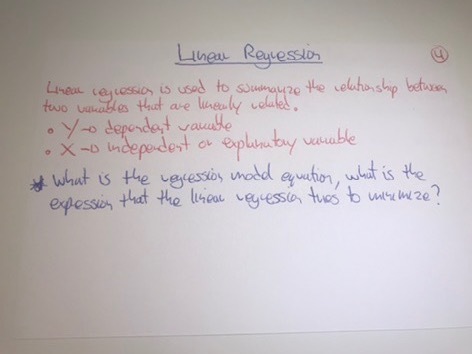 Linear Regression
4
Linear regression is used to summarize the relationship between
two variables that are linearly related.
• Y → dependent variable
• X → independent or explanatory variable
* What is the regression model equation, what is the
expression that the linear regression tries to minimize?